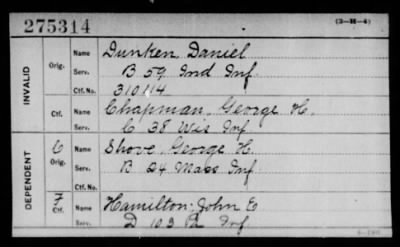 275314
(3-H-4)
INVALID
Orig.
Name Dunken, Daniel
Serv. B 59 Ind Inf.
Ctf. No. 310114
Ctf.
Name Chapman, George H.
Serv. C 38 Wis Inf
DEPENDENT
C
Orig.
Name Shove, George H.
Serv. B 24 Mass Inf
Ctf.
Name Hamilton, John E
Serv. D 103 Pa Inf